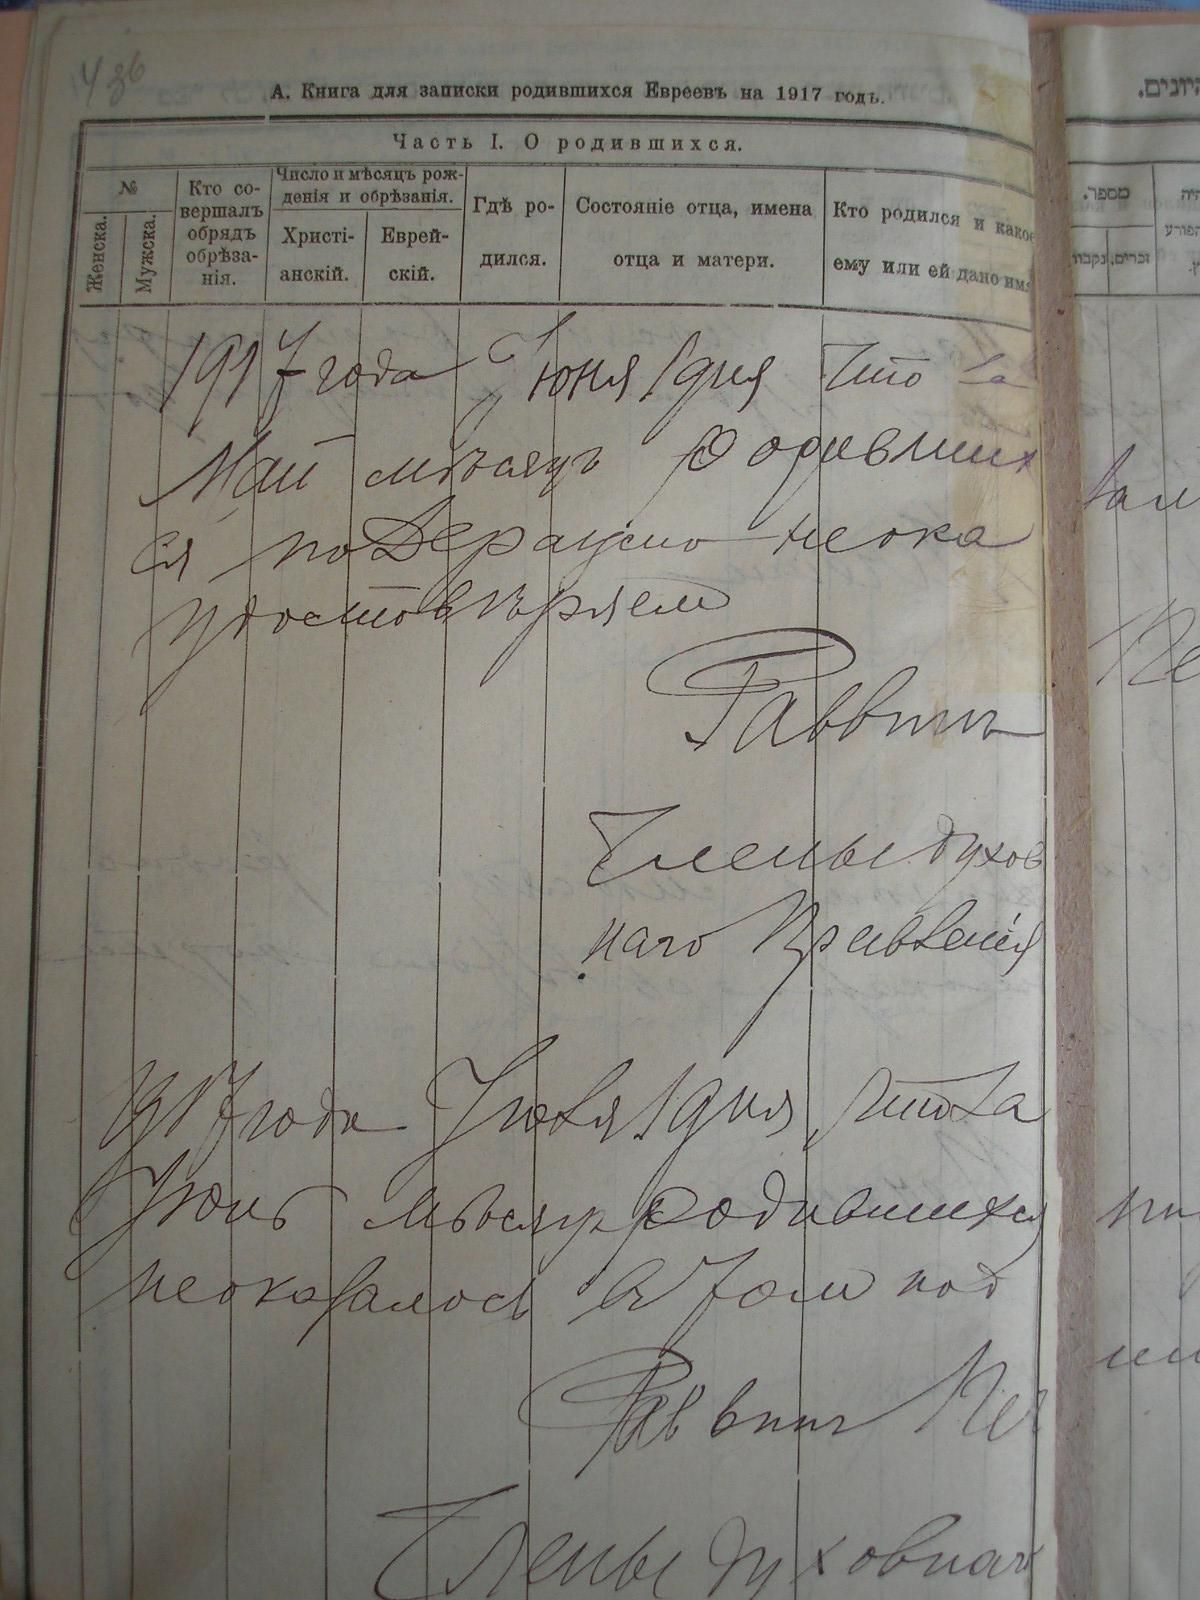 436
А. Книга для записки родившихся Евреевъ на 1917 годъ.
Часть I. О родившихся.
№
Женска.
Мужска.
Кто со-
вершалъ
обрядъ
обрѣза-
нія.
Число и мѣсяцъ рож-
денія и обрѣзанія.
Христі-
анскій.
Еврей-
скій.
Гдѣ ро-
дился.
Состояніе отца, имена
отца и матери.
Кто родился и какое
ему или ей дано имя
1917 года Іюня 1 дня что за
Май мѣсяцъ родивших
ся по неока
удостовѣряем
Раввинъ
Члены духов
наго Правленія
1917 года Іюля 1 дня что за
Іюнь мѣсяцъ родившихся
неоказалось в том под
Раввинъ
Члены духовнаг
מספר.
זכרים. נקבות